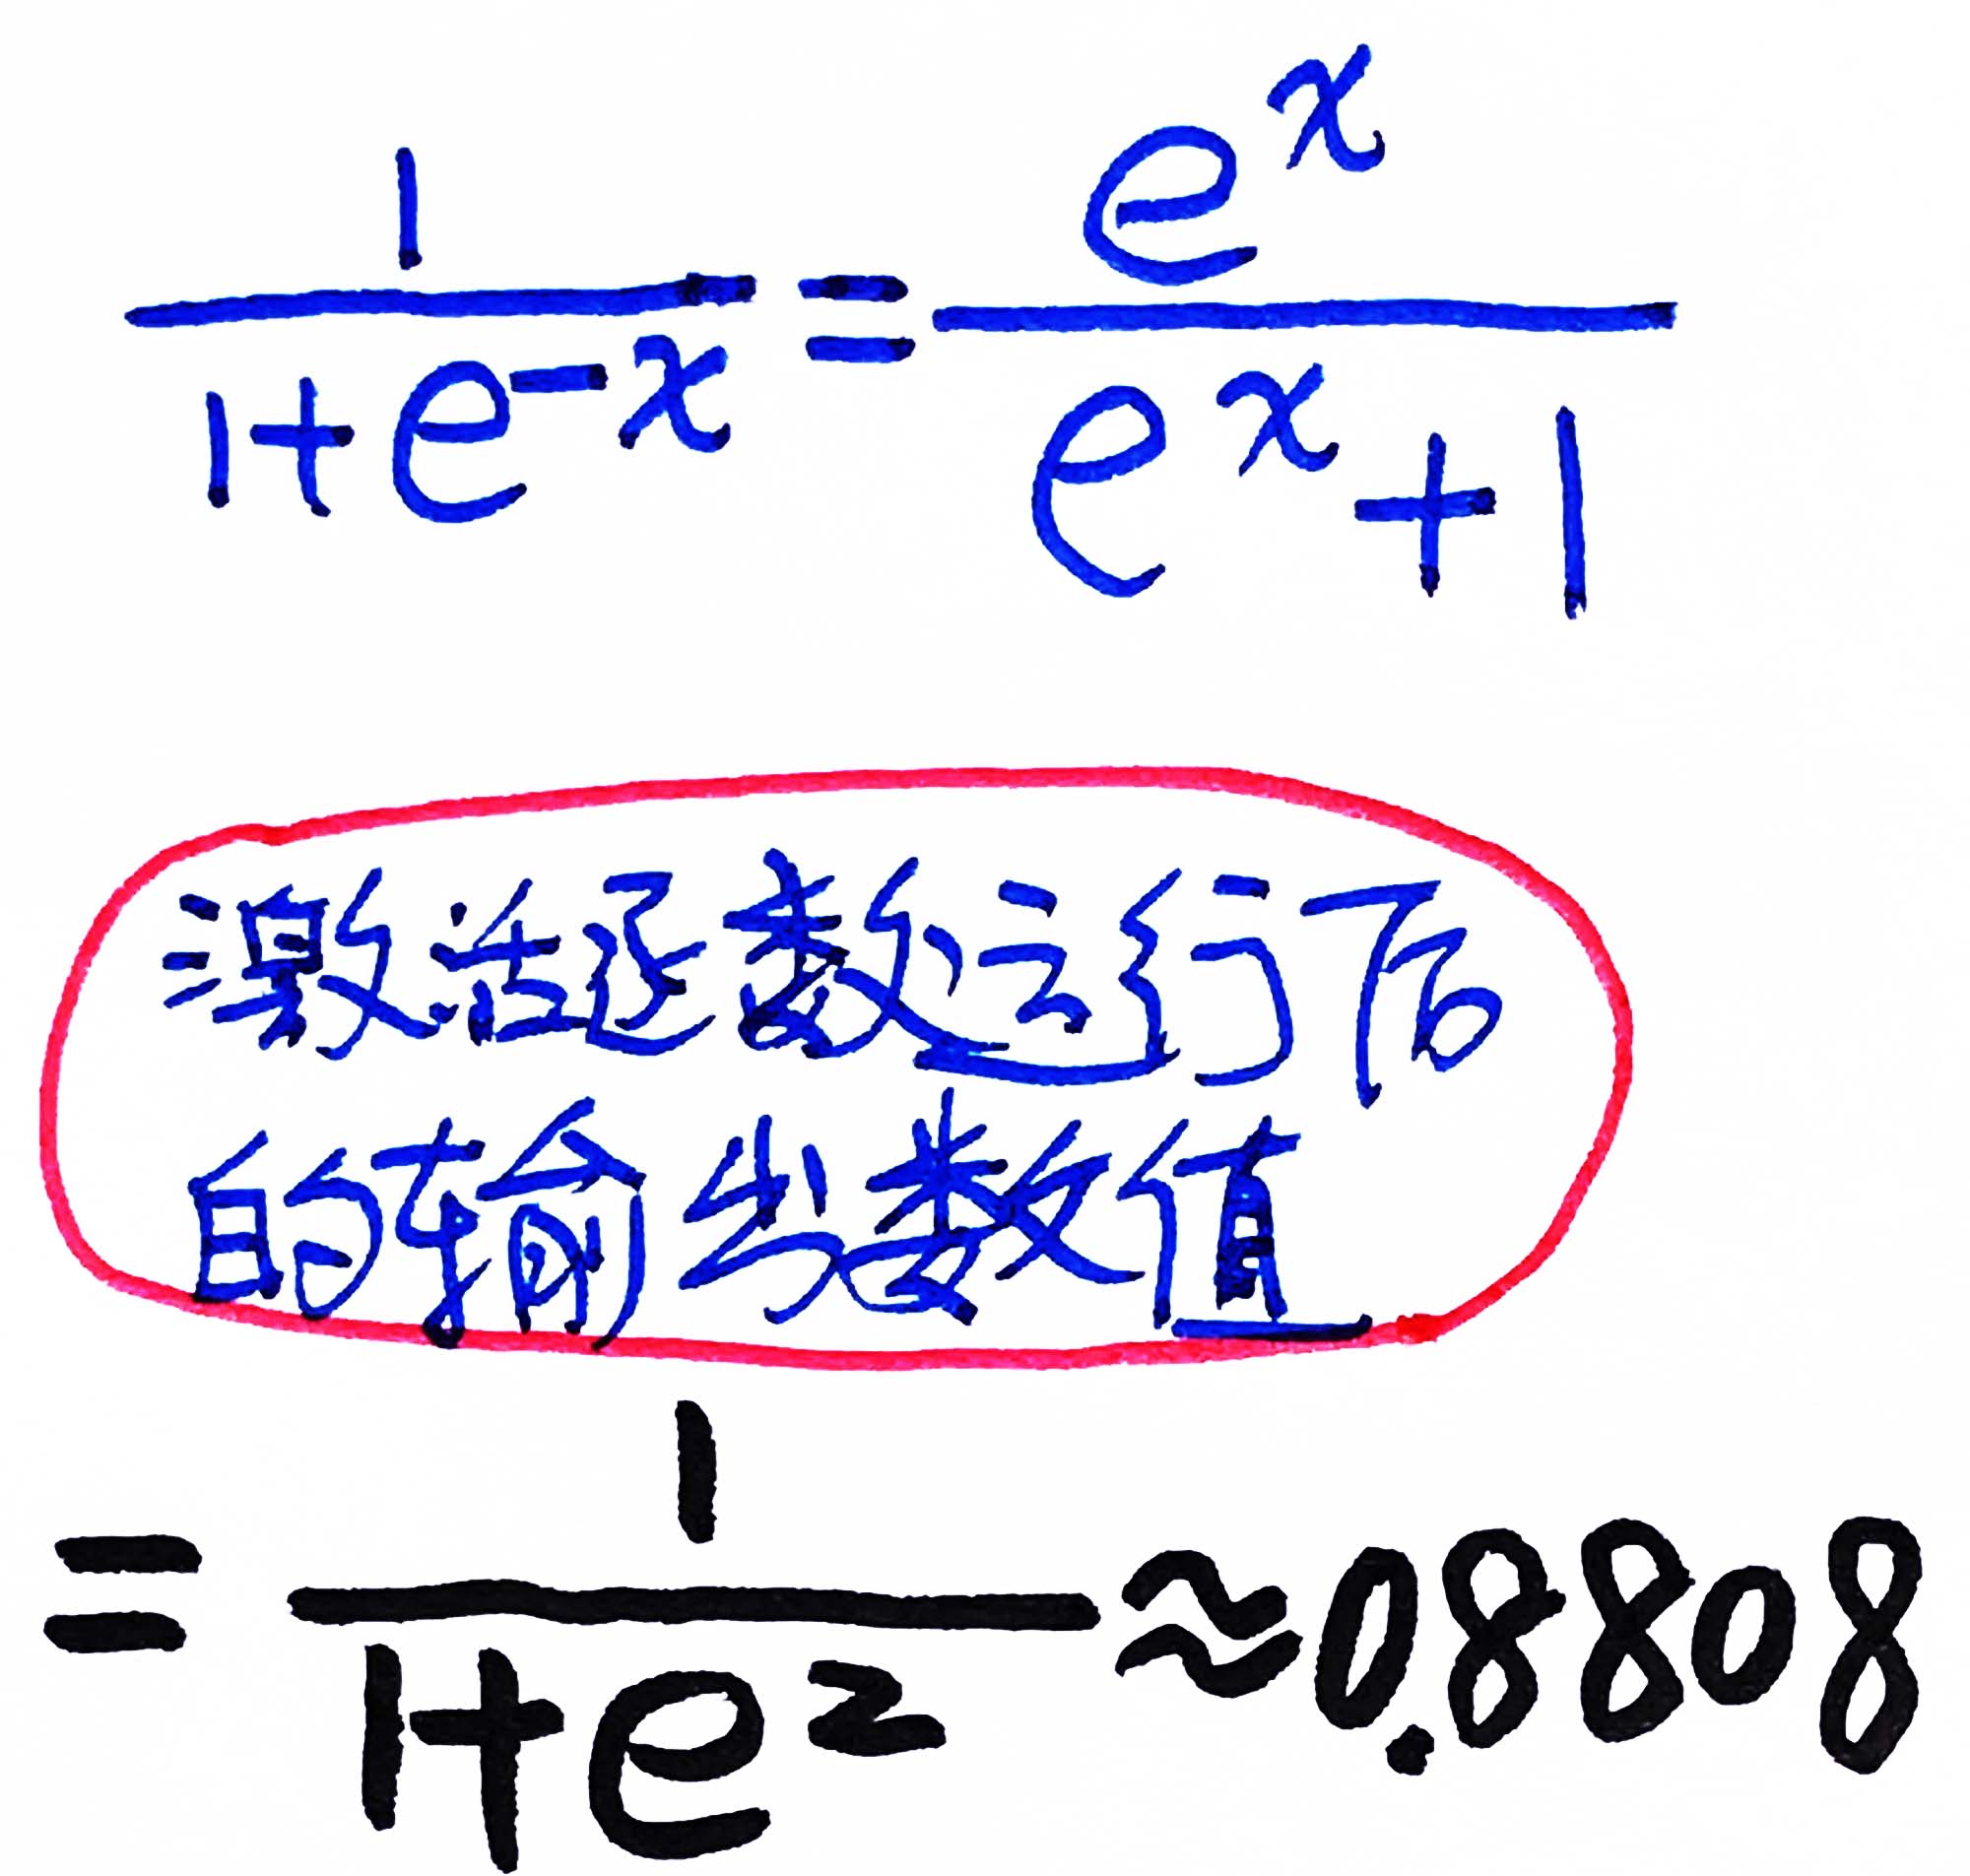 1/(1+e^{-x}) = e^x/(e^x+1)
激活函数运行后
的输出数值
= 1/(1+e^2) ≈ 0.8808